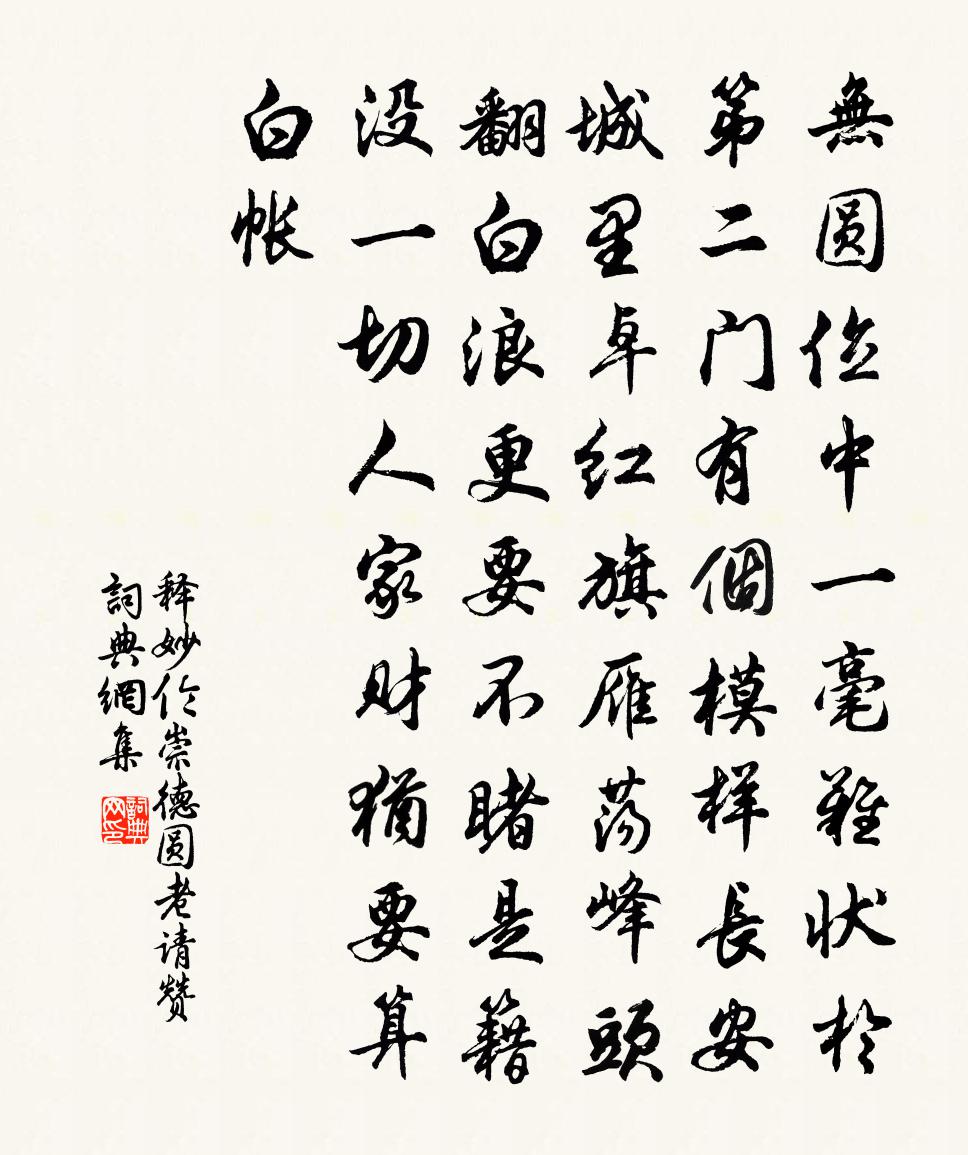 無圆位中一毫難状於
第二门有個模样長安
城里卓红旗雁荡峰頭
翻白浪更要不睹是籍
没一切人家财猶要算
白帐
释妙伦崇德圆老请赞
詞典網集
詞典网印